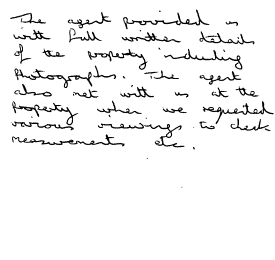 The agent provided us
with full written details
of the property including
photographs. The agent
also met with us at the
property when we requested
various viewings to check
measurements etc.